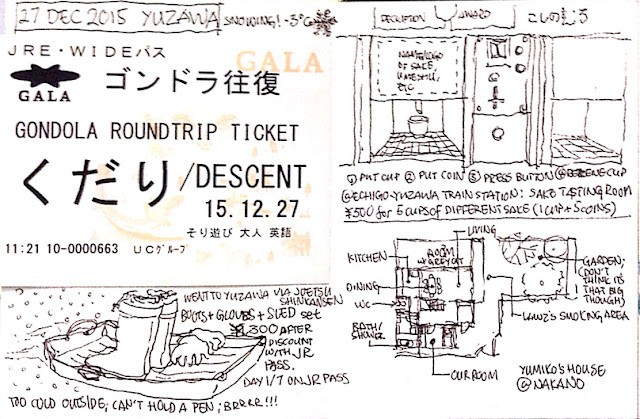 27 DEC 2015 YUZAWA SNOWING! -3°C
JRE・WIDEパス
GALA
ゴンドラ往復
GALA
GONDOLA ROUNDTRIP TICKET
くだり/DESCENT
15.12.27
そり遊び 大人 英語
11:21 10-0000663 UCグループ
WENT TO YUZAWA VIA JOETSU
SHINKANSEN
BOOTS + GLOVES + SLED set
300 AFTER
DISCOUNT
WITH JR
PASS.
DAY 1/7 ON JR PASS
TOO COLD OUTSIDE; CAN'T HOLD A PEN; BRRRR!!!
DESCRIPTION
AWARD
NAME/LOGO
OF SAKE,
UMESHU,
ETC
① PUT CUP ② PUT COIN ③ PRESS BUTTON ④ CUP
@ECHIGO-YUZAWA TRAIN STATION: SAKE TASTING ROOM
¥500 for 5 CUPS OF DIFFERENT SAKE (1 CUP + 5 COINS)
LIVING
KITCHEN
ROOM
DINING
WC
BATH/
SHOWER
OUR ROOM
GARDEN;
(DON'T
THINK IT'S
THAT BIG
THOUGH)
SMOKING AREA
YUMIKO'S HOUSE
@NAKANO